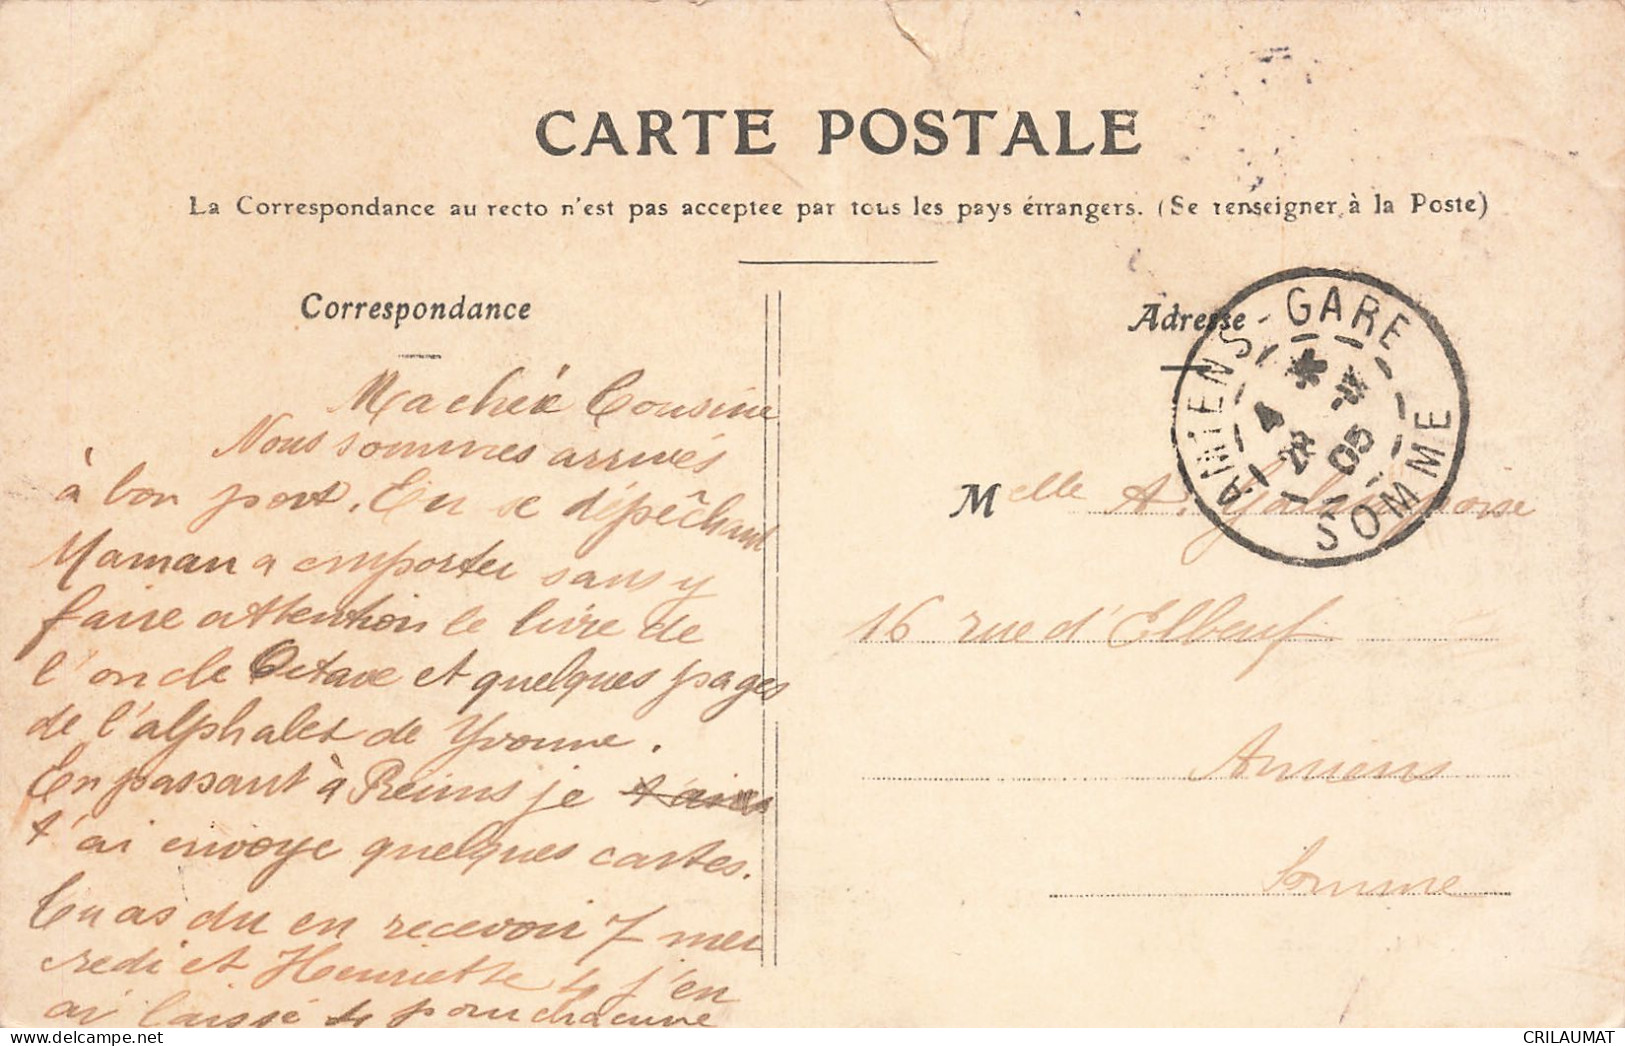 CARTE POSTALE
La Correspondance au recto n'est pas acceptée par tous les pays étrangers. (Se renseigner à la Poste)
Correspondance
Ma chère Cousine
Nous sommes arrivés
à bon port. En se dépêchant
Maman a emporter sans y
faire attention le livre de
l'oncle Octave et quelques pages
de l'alphabet de Yvonne.
En passant à Reims je
t'ai envoye quelques cartes.
Tu as du en recevoir 7 mer
credi et Henriette 4 j'en
ai laissé 4 pour chacune
Adresse
AMIENS-GARE
SOMME
4
28
05
Melle A.
16 rue d'Elbeuf
Amiens
Somme
CRILAUMAT